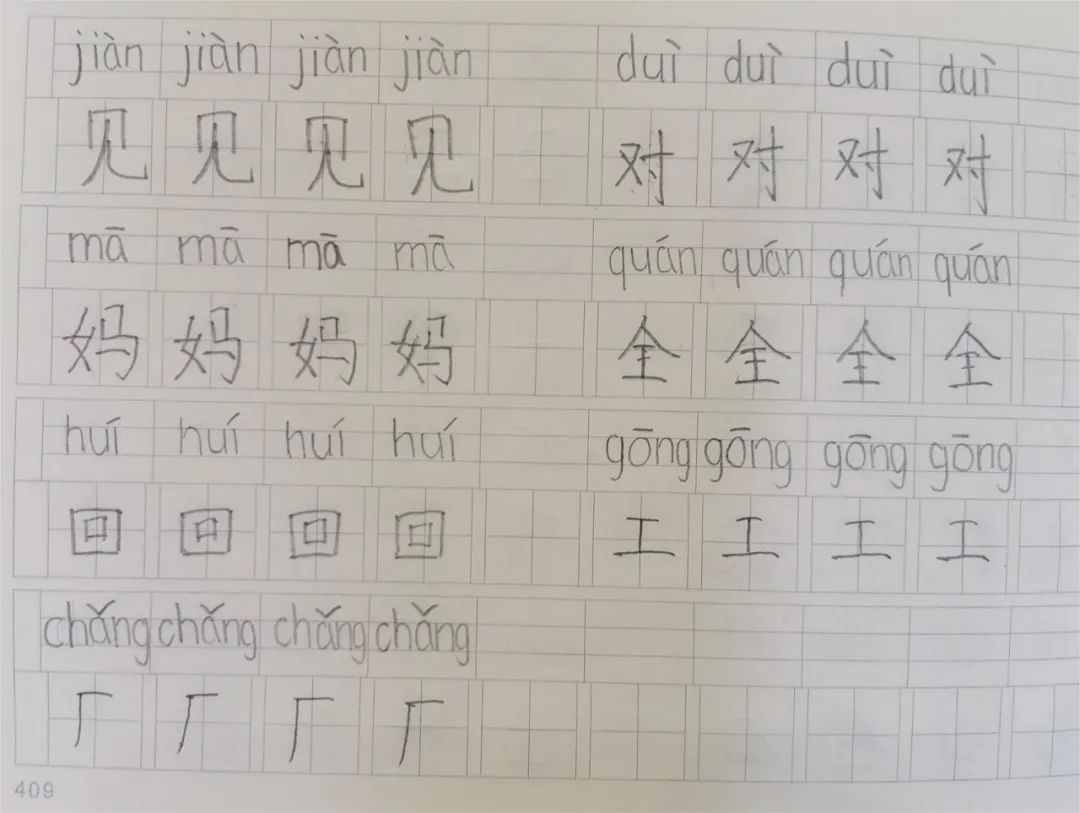 jiàn jiàn jiàn jiàn duì duì duì duì
见 见 见 见 对 对 对 对
mā mā mā mā quán quán quán quán
妈 妈 妈 妈 全 全 全 全
huí huí huí huí gōng gōng gōng gōng
回 回 回 回 工 工 工 工
chǎng chǎng chǎng chǎng
厂 厂 厂 厂
409